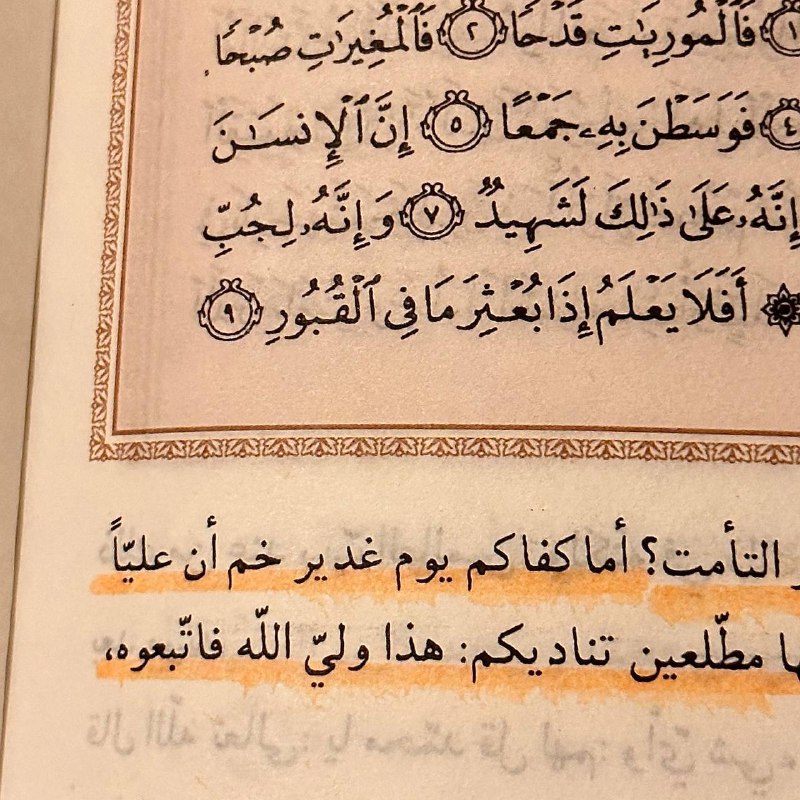 ١ فَٱلْمُورِيَٰتِ قَدْحًا ٢ فَٱلْمُغِيرَٰتِ صُبْحًا
٤ فَوَسَطْنَ بِهِۦ جَمْعًا ٥ إِنَّ ٱلْإِنسَٰنَ
إِنَّهُۥ عَلَىٰ ذَٰلِكَ لَشَهِيدٌ ٧ وَإِنَّهُۥ لِحُبِّ
۞ أَفَلَا يَعْلَمُ إِذَا بُعْثِرَ مَا فِى ٱلْقُبُورِ ٩
التأمت؟ أما كفاكم يوم غدير خم أن عليّاً
مطّلعين تناديكم: هذا وليّ اللّه فاتّبعوه،